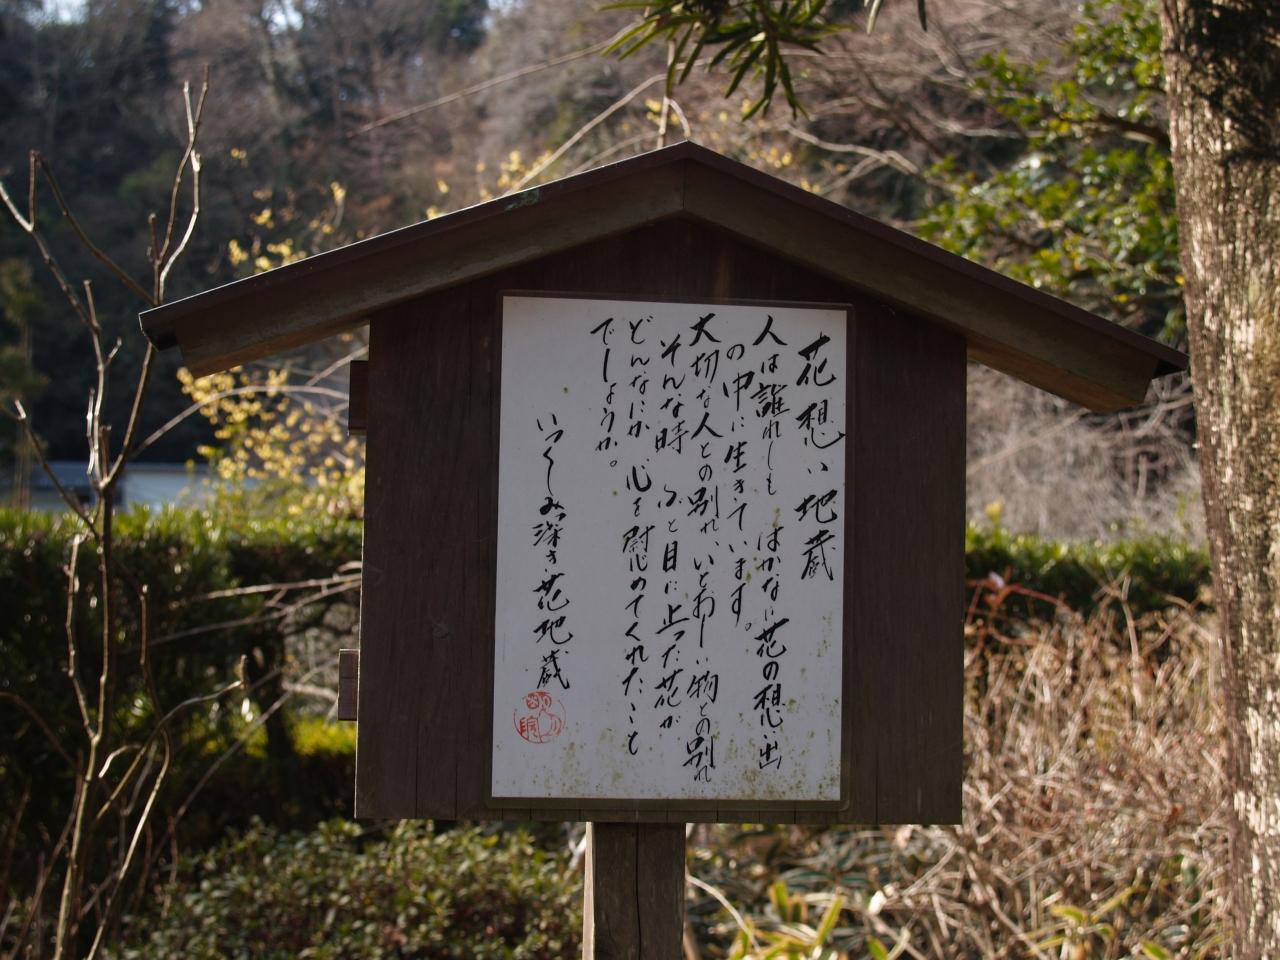 花想い地蔵
人は誰れしも　はかない花の想い出
の中に生きています。
大切な人との別れ、いとおしい物との別れ
そんな時　ふと目に止った花が
どんなにか　心を慰めてくれたことも
でしょうか。
いつくしみ深き花地蔵